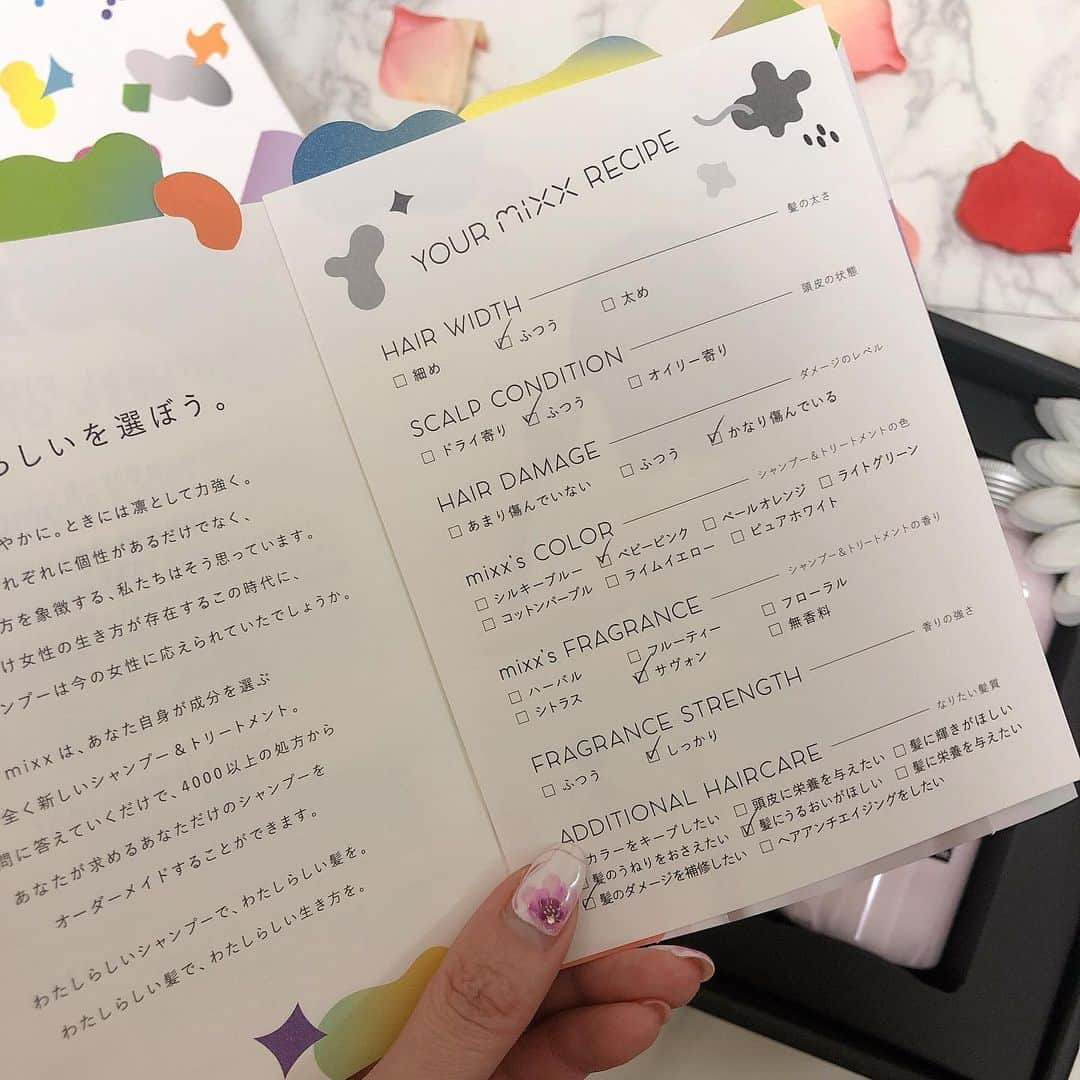 らしいを選ぼう。
やかに。ときには凛として力強く。
れぞれに個性があるだけでなく、
方を象徴する、私たちはそう思っています。
け女性の生き方が存在するこの時代に、
ンプーは今の女性に応えられていたでしょうか。
mixxは、あなた自身が成分を選ぶ
全く新しいシャンプー&トリートメント。
問に答えていくだけで、4000以上の処方から
あなたが求めるあなただけのシャンプーを
オーダーメイドすることができます。
わたしらしいシャンプーで、わたしらしい髪を。
わたしらしい髪で、わたしらしい生き方を。
YOUR mixx RECIPE
HAIR WIDTH 髪の太さ
□ 細め ☑ ふつう □ 太め
SCALP CONDITION 頭皮の状態
□ ドライ寄り ☑ ふつう □ オイリー寄り
HAIR DAMAGE ダメージのレベル
□ あまり傷んでいない □ ふつう ☑ かなり傷んでいる
mixx's COLOR シャンプー&トリートメントの色
□ シルキーブルー ☑ ベビーピンク □ ペールオレンジ □ ライトグリーン
□ コットンパープル □ ライムイエロー □ ピュアホワイト
mixx's FRAGRANCE シャンプー&トリートメントの香り
□ ハーバル □ フルーティー □ フローラル
□ シトラス ☑ サヴォン □ 無香料
FRAGRANCE STRENGTH 香りの強さ
□ ふつう ☑ しっかり
ADDITIONAL HAIRCARE なりたい髪質
カラーをキープしたい □ 頭皮に栄養を与えたい □ 髪に輝きがほしい
髪のうねりをおさえたい ☑ 髪にうるおいがほしい □ 髪に栄養を与えたい
☑ 髪のダメージを補修したい □ ヘアアンチエイジングをしたい